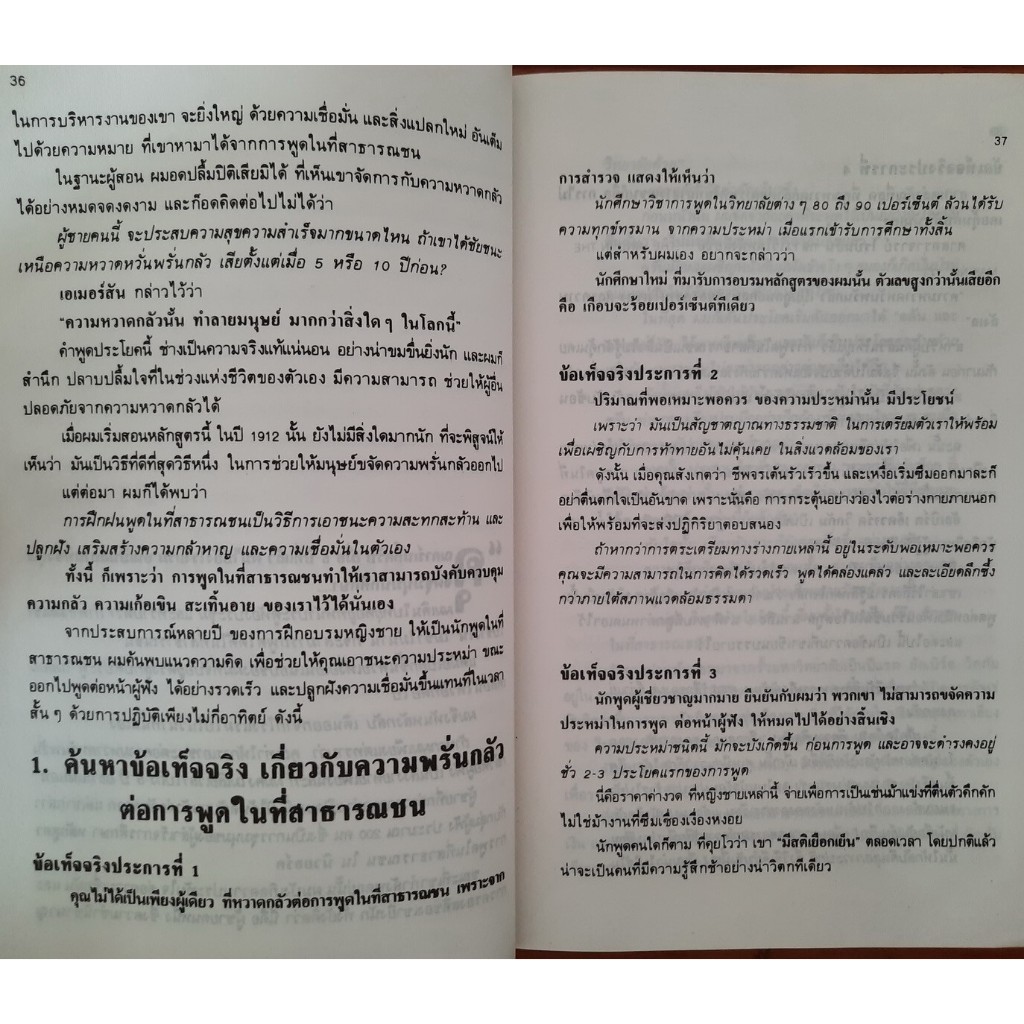 36
ในการบริหารงานของเขา จะยิ่งใหญ่ ด้วยความเชื่อมั่น และสิ่งแปลกใหม่ อันเต็ม
ไปด้วยความหมาย ที่เขาหามาได้จากการพูดในที่สาธารณชน
ในฐานะผู้สอน ผมอดปลื้มปิติเสียมิได้ ที่เห็นเขาจัดการกับความหวาดกลัว
ได้อย่างหมดจดงดงาม และก็อดคิดต่อไปไม่ได้ว่า
ผู้ชายคนนี้ จะประสบความสุขความสำเร็จมากขนาดไหน ถ้าเขาได้ชัยชนะ
เหนือความหวาดหวั่นพรั่นกลัว เสียตั้งแต่เมื่อ 5 หรือ 10 ปีก่อน?
เอเมอร์สัน กล่าวไว้ว่า
"ความหวาดกลัวนั้น ทำลายมนุษย์ มากกว่าสิ่งใดๆ ในโลกนี้"
คำพูดประโยคนี้ ช่างเป็นความจริงแท้แน่นอน อย่างน่าขมขื่นยิ่งนัก และผมก็
สำนึก ปลาบปลื้มใจที่ในช่วงแห่งชีวิตของตัวเอง มีความสามารถ ช่วยให้ผู้อื่น
ปลอดภัยจากความหวาดกลัวได้
เมื่อผมเริ่มสอนหลักสูตรนี้ ในปี 1912 นั้น ยังไม่มีสิ่งใดมากนัก ที่จะพิสูจน์ให้
เห็นว่า มันเป็นวิธีที่ดีที่สุดวิธีหนึ่ง ในการช่วยให้มนุษย์ขจัดความพรั่นกลัวออกไป
แต่ต่อมา ผมก็ได้พบว่า
การฝึกฝนพูดในที่สาธารณชนเป็นวิธีการเอาชนะความสะทกสะท้าน และ
ปลูกฝัง เสริมสร้างความกล้าหาญ และความเชื่อมั่นในตัวเอง
ทั้งนี้ ก็เพราะว่า การพูดในที่สาธารณชนทำให้เราสามารถบังคับควบคุม
ความกลัว ความเก้อเขิน สะเทิ้นอาย ของเราไว้ได้นั่นเอง
จากประสบการณ์หลายปี ของการฝึกอบรมหญิงชาย ให้เป็นนักพูดในที่
สาธารณชน ผมค้นพบแนวความคิด เพื่อช่วยให้คุณเอาชนะความประหม่า ขณะ
ออกไปพูดต่อหน้าผู้ฟัง ได้อย่างรวดเร็ว และปลูกฝังความเชื่อมั่นขึ้นแทนที่ในเวลา
สั้นๆ ด้วยการปฏิบัติเพียงไม่กี่อาทิตย์ ดังนี้
1. ค้นหาข้อเท็จจริง เกี่ยวกับความพรั่นกลัว
ต่อการพูดในที่สาธารณชน
ข้อเท็จจริงประการที่ 1
คุณไม่ได้เป็นเพียงผู้เดียว ที่หวาดกลัวต่อการพูดในที่สาธารณชน เพราะจาก
37
การสำรวจ แสดงให้เห็นว่า
นักศึกษาวิชาการพูดในวิทยาลัยต่างๆ 80 ถึง 90 เปอร์เซ็นต์ ล้วนได้รับ
ความทุกข์ทรมาน จากความประหม่า เมื่อแรกเข้ารับการศึกษาทั้งสิ้น
แต่สำหรับผมเอง อยากจะกล่าวว่า
นักศึกษาใหม่ ที่มารับการอบรมหลักสูตรของผมนั้น ตัวเลขสูงกว่านั้นเสียอีก
คือ เกือบจะร้อยเปอร์เซ็นต์ทีเดียว
ข้อเท็จจริงประการที่ 2
ปริมาณที่พอเหมาะพอควร ของความประหม่านั้น มีประโยชน์
เพราะว่า มันเป็นสัญชาตญาณทางธรรมชาติ ในการเตรียมตัวเราให้พร้อม
เพื่อเผชิญกับการท้าทายอันไม่คุ้นเคย ในสิ่งแวดล้อมของเรา
ดังนั้น เมื่อคุณสังเกตว่า ชีพจรเต้นรัวเร็วขึ้น และเหงื่อเริ่มซึมออกมาละก็
อย่าตื่นตกใจเป็นอันขาด เพราะนั่นคือ การกระตุ้นอย่างว่องไวต่อร่างกายภายนอก
เพื่อให้พร้อมที่จะส่งปฏิกิริยาตอบสนอง
ถ้าหากว่าการตระเตรียมทางร่างกายเหล่านี้ อยู่ในระดับพอเหมาะพอควร
คุณจะมีความสามารถในการคิดได้รวดเร็ว พูดได้คล่องแคล่ว และละเอียดลึกซึ้ง
กว่าภายใต้สภาพแวดล้อมธรรมดา
ข้อเท็จจริงประการที่ 3
นักพูดผู้เชี่ยวชาญมากมาย ยืนยันกับผมว่า พวกเขา ไม่สามารถขจัดความ
ประหม่าในการพูด ต่อหน้าผู้ฟัง ให้หมดไปได้อย่างสิ้นเชิง
ความประหม่าชนิดนี้ มักจะบังเกิดขึ้น ก่อนการพูด และอาจจะดำรงคงอยู่
ชั่ว 2-3 ประโยคแรกของการพูด
นี่คือราคาค่างวด ที่หญิงชายเหล่านี้ จ่ายเพื่อการเป็นเช่นม้าแข่งที่ตื่นตัวคึกคัก
ไม่ใช่ม้างานที่ซึมเซื่องเงื่องหงอย
นักพูดคนใดก็ตาม ที่คุยโวว่า เขา "มีสติเยือกเย็น" ตลอดเวลา โดยปกติแล้ว
น่าจะเป็นคนที่มีความรู้สึกช้าอย่างน่าวิตกทีเดียว